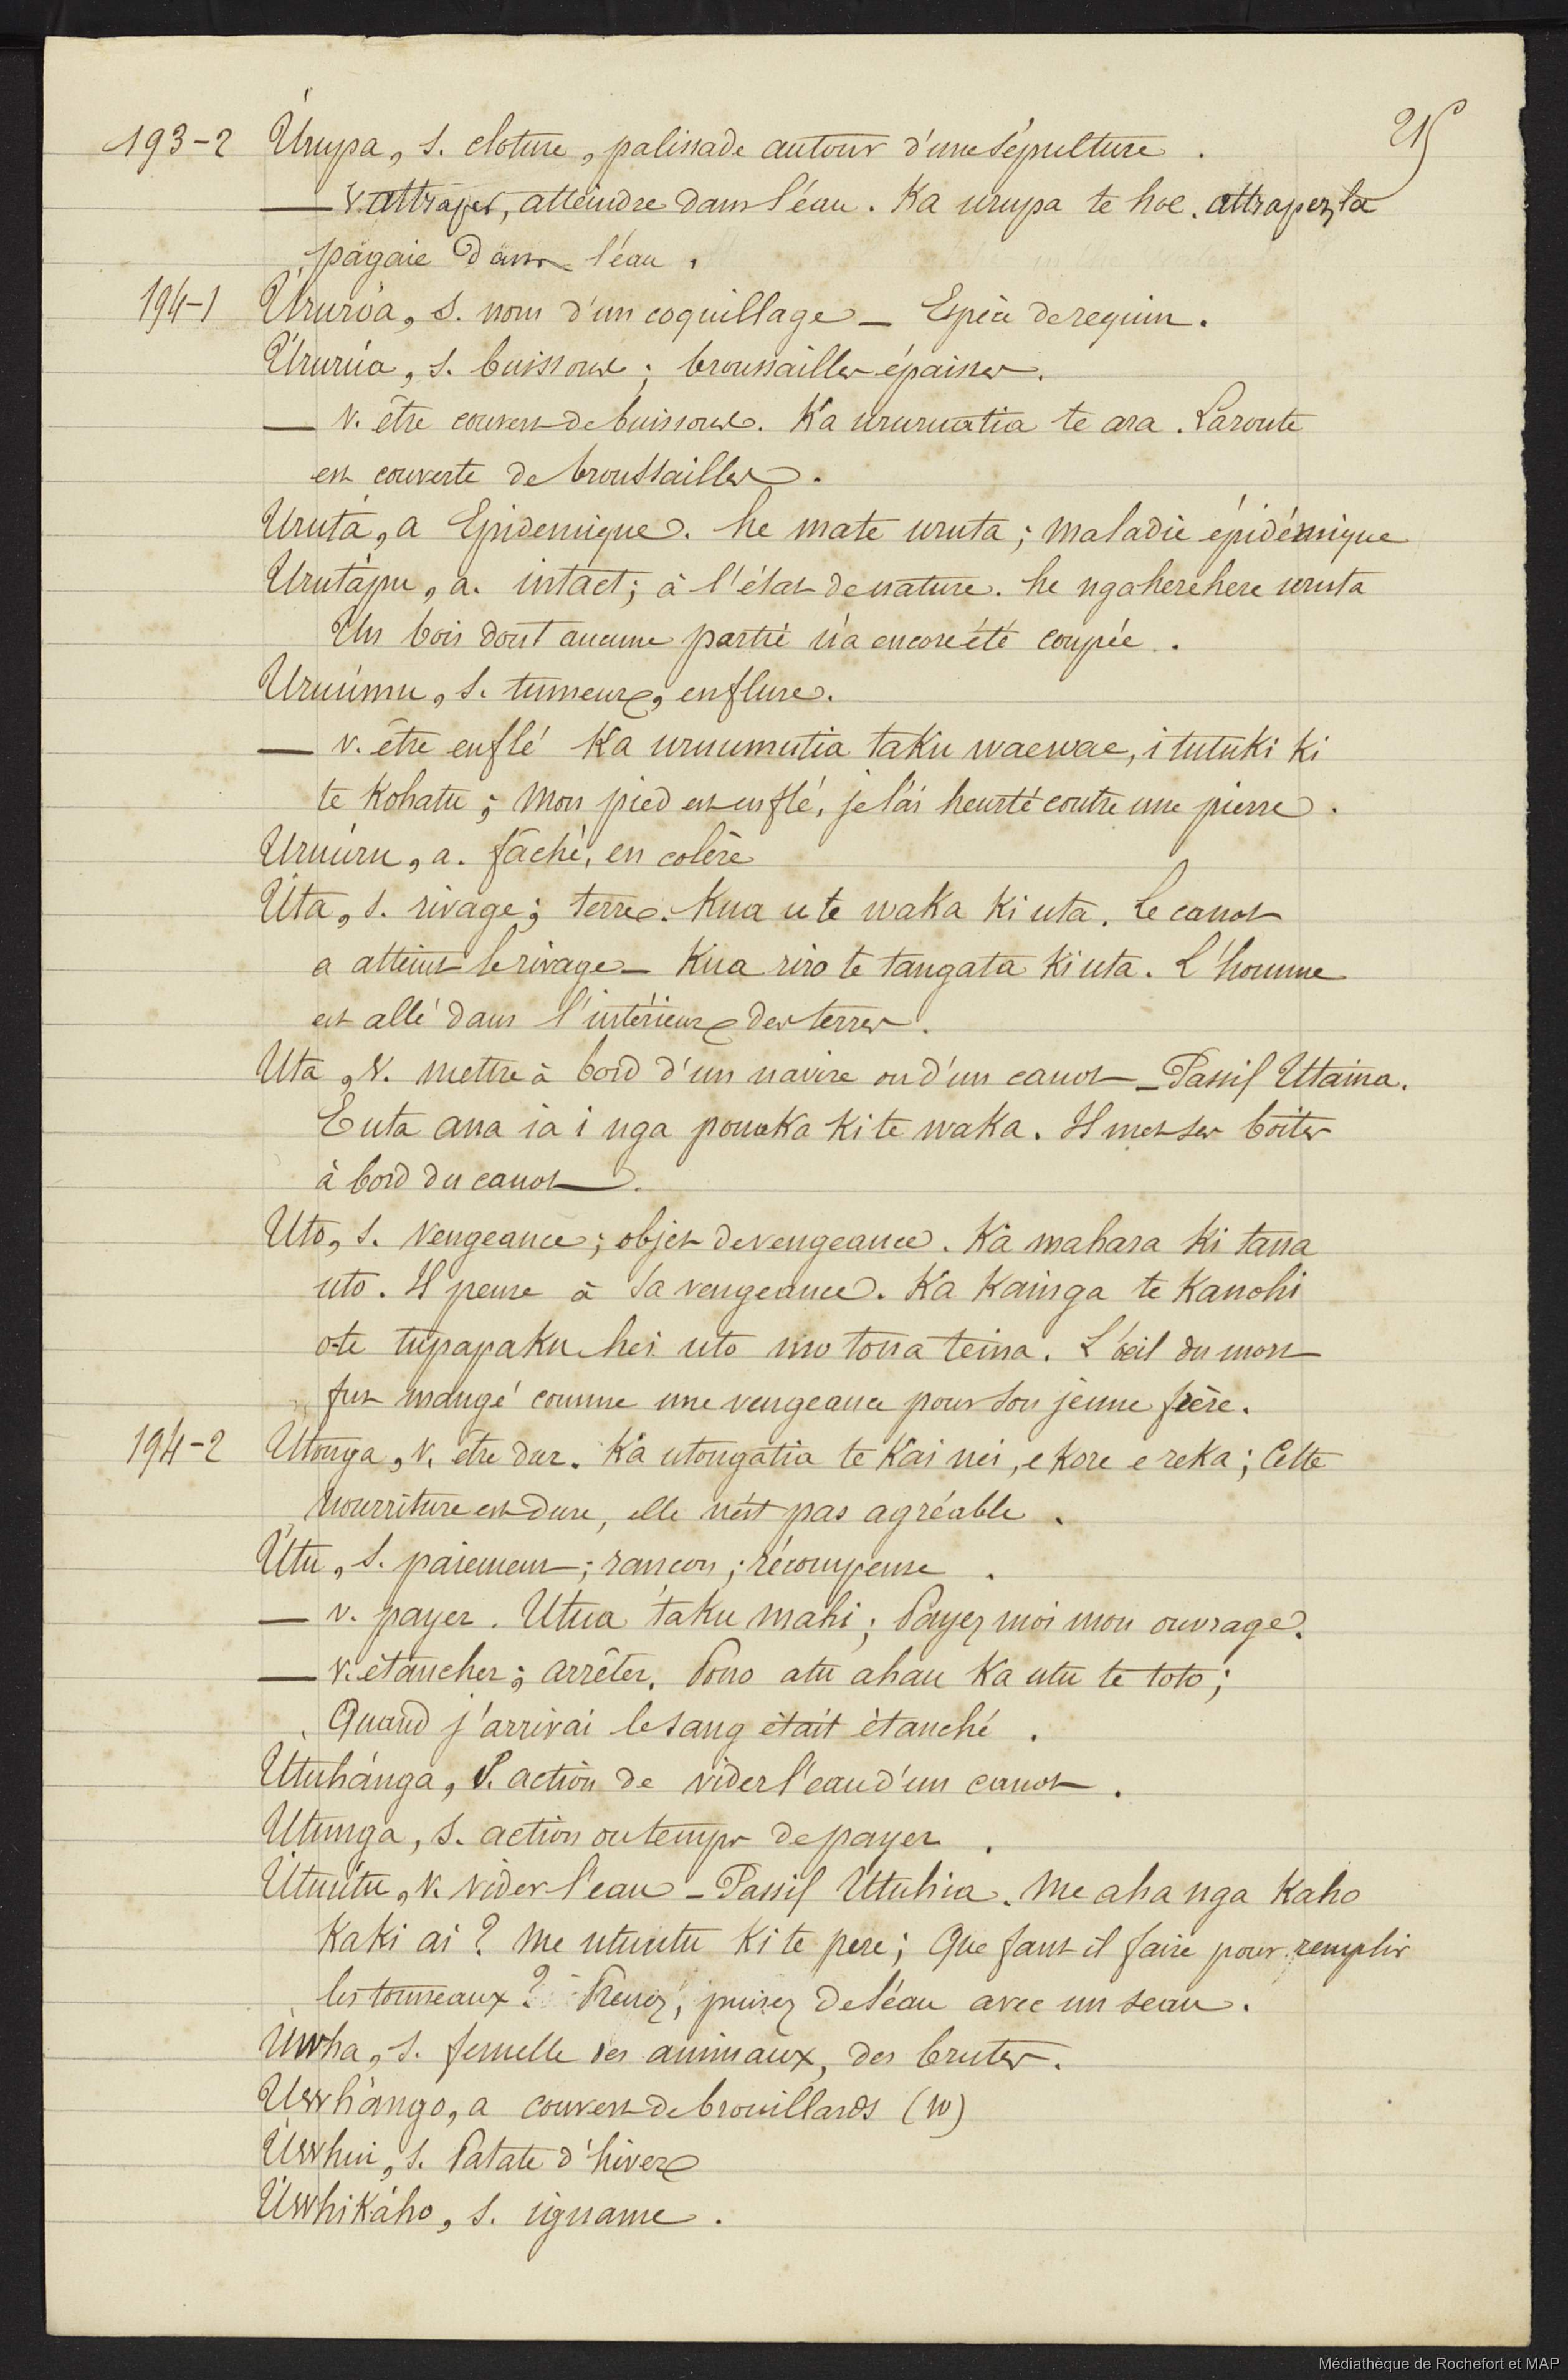 215
193-2 Úrupa, s. cloture, palissade autour d'une sépulture.
— v. attraper, atteindre dans l'éau. Ka urupa te hoe. attrapez la
pagaie dans l'éau.
194-1 Ururóa, s. nom d'un coquillage — Espèce de requin.
Ururúa, s. buissons; broussailles épaisses.
— v. être couvert de buissons. Ka ururuatia te ara. La route
est couverte de broussailles.
Urutá, a Epidemique. he mate uruta; maladie épidémique
Urutápu, a. intact; à l'état de nature. he ngaherehere uruta
Un bois dont aucune partie n'a encore été coupée.
Uruúmu, s. tumeur, enflure.
— v. être enflé Ka uruumutia taku waewae, i tutuki ki
te Kohatu; Mon pied est enflé, je l'ai heurté contre une pierre.
Uruúru, a. fâché, en colère
Úta, s. rivage; terre. Kua u te waka ki uta. Le canot
a atteint le rivage — Kua riro te tangata ki uta. L'homme
est allé dans l'intérieur des terres.
Uta, v. mettre à bord d'un navire ou d'un canot — Passif Utaina.
E uta ana ia i nga pouaka ki te waka. Il met ses boites
à bord du canot.
Uto, s. vengeance; objet de vengeance. Ka mahara ki tana
uto. Il pense à sa vengeance. Ka Kainga te Kanohi
o te tupapaku hei uto mo tona teina. L'œil du mort
fut mangé comme une vengeance pour son jeune frère.
194-2 Utonga, v. être dur. Ka utongatia te Kai nei, e kore e reka; Cette
nourriture est dure, elle n'est pas agréable.
Útu, s. paiement; rançon; récompense.
— v. payer. Utua taku mahi; Payez moi mon ouvrage.
— v. étancher; arrêter. Pono atu ahau Ka utu te toto;
Quand j'arrivai le sang était étanché.
Útuhánga, s. action de vider l'eau d'un canot.
Utunga, s. action ou temps de payer.
Útuútu, v. vider l'eau — Passif Utuhia. Me aha nga Kaho
Kaki ai? Me utuutu ki te pere; Que faut il faire pour remplir
les tonneaux? Prenez, puisez de l'éau avec un seau.
Úwha, s. femelle des animaux, des brutes.
Uwhángo, a couvert de brouillards (W)
Úwhui, s. Patate d'hiver
ÚwhiKáho, s. igname.
Médiathèque de Rochefort et MAP